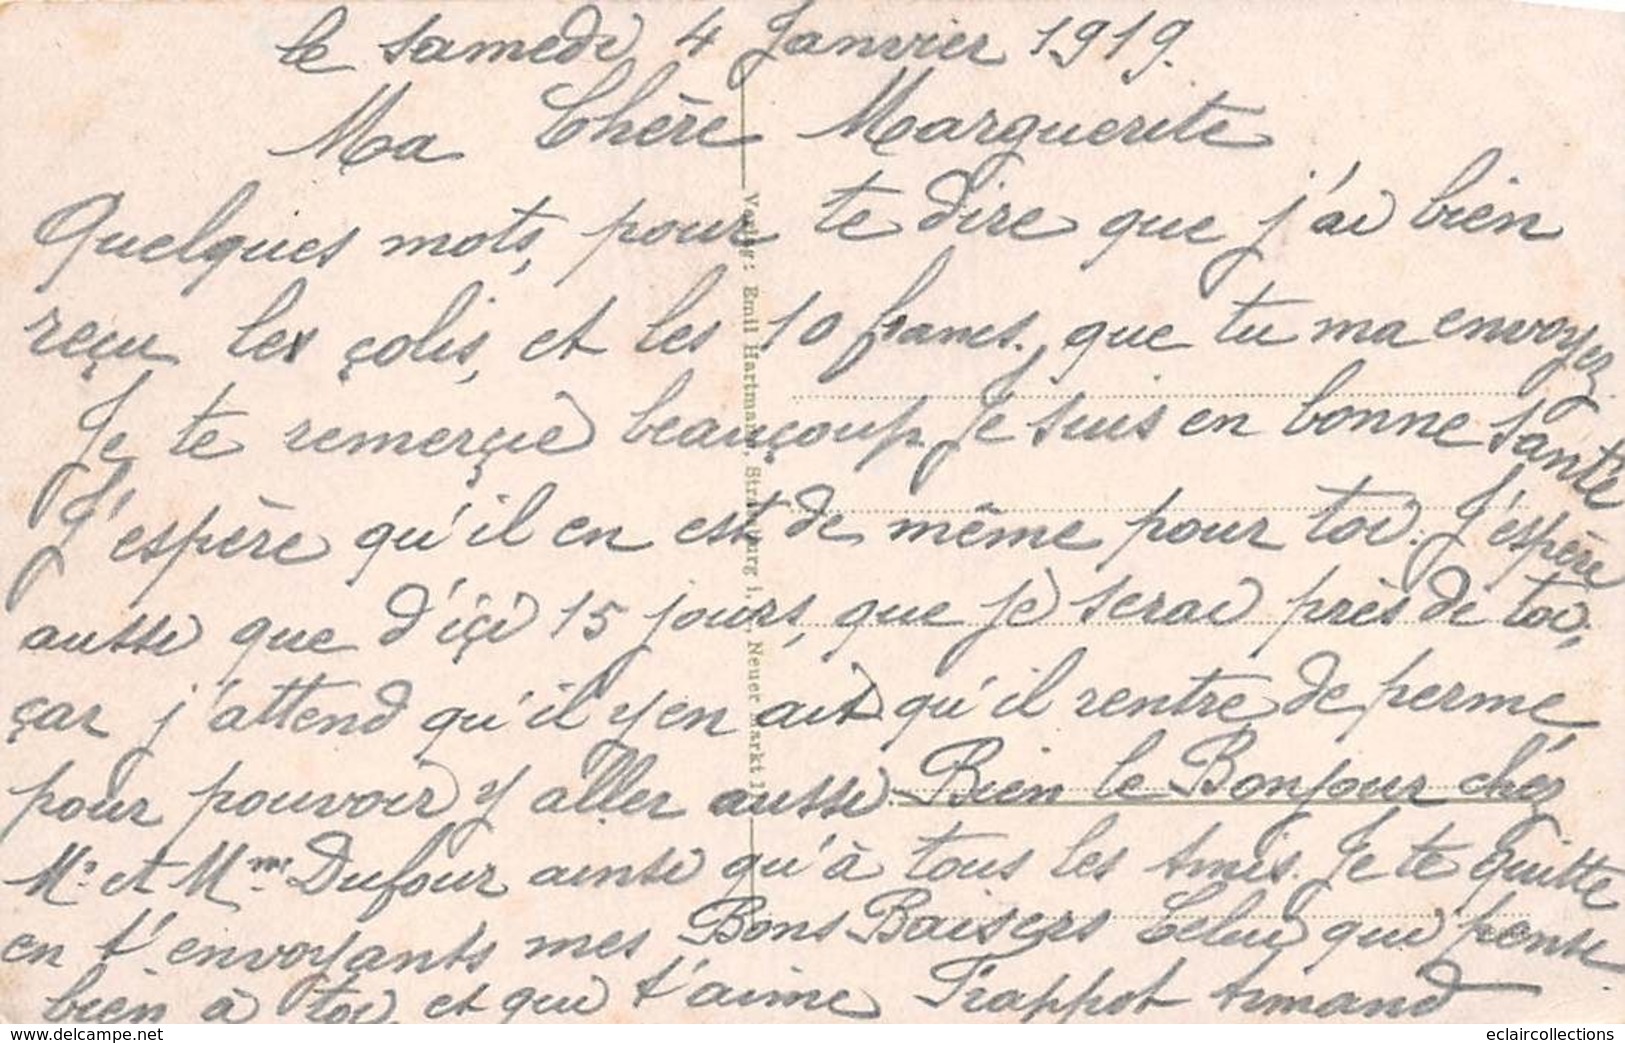 le samedi 4 Janvier 1919.
Ma Chère Marguerite
Quelques mots, pour te dire que j'ai bien
reçu les çolis, et les 10 francs, que tu ma envoyez
Je te remerçie beauçoup. Je suis en bonne santé
J'espère qu'il en est de même pour toi. J'espère
aussi que d'içi 15 jours, que je serai près de toi,
çar j'attend qu'il y en ait qu'il rentre de perme
pour pouvoir y aller aussi Bien le Bonjour chéz
Mr et Mme Dufour ainsi qu'à tous les Amis. Je te quitte
en t'envoyants mes Bons Baisers Celui qui pense
bien à toi et qui t'aime Trappot Armand
Verlag: Emil Hartmann, Strassburg i. Neuer Markt
eclaircollections